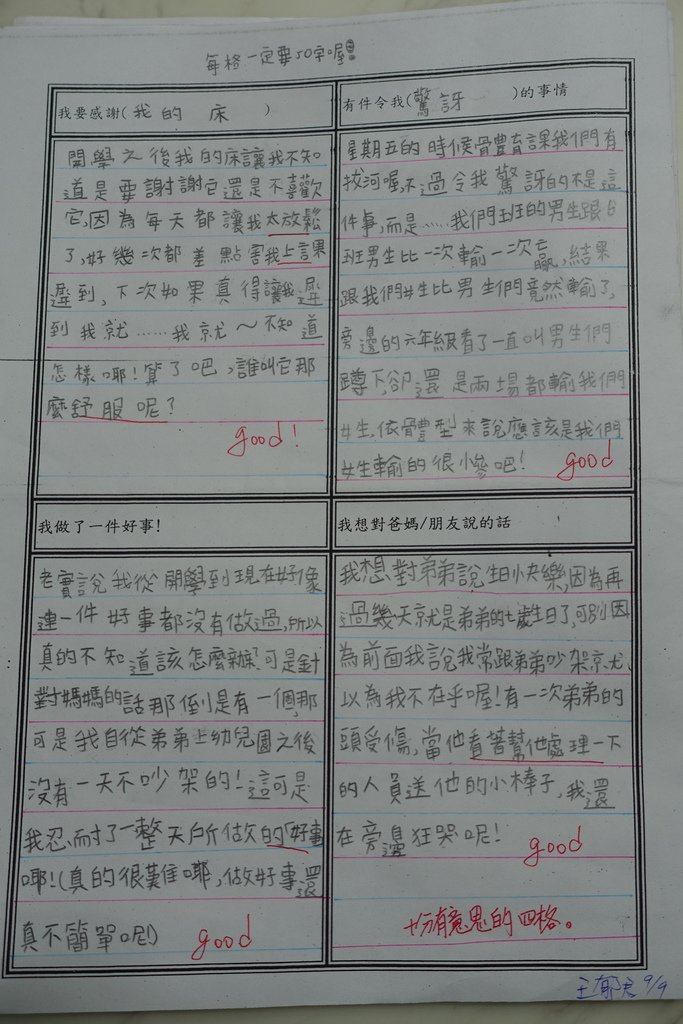 每格一定要50字喔!
我要感謝(我的床)
開學之後我的床讓我不知
道是要謝謝它還是不喜歡
它,因為每天都讓我太放鬆
了,好幾次都差點害我上課
遲到,下次如果真得讓我遲
到我就……我就~不知道
怎樣耶!算了吧,誰叫它那
麼舒服呢?
good!
有件令我(驚訝)的事情
星期五的時候骨豊育課我們有
拔河喔,不過令我驚訝的不是這
件事,而是……我們班的男生跟6
班男生比一次輸一次贏,結果
跟我們女生比男生們竟然輸了,
旁邊的六年級看了一直叫男生們
蹲下,卻還是兩場都輸我們
女生,依體型來說應該是我們
女生輸的很小參吧!
good
我做了一件好事!
老實說我從開學到現在好像
連一件好事都沒有做過,所以
真的不知道該怎麼辦?可是針
對媽媽的話那倒是有一個,那
可是我自從弟弟上幼兒園之後
沒有一天不吵架的!這可是
我忍耐了一整天所做的「好事」
耶!(真的很難耶,做好事還
真不簡單呢!)
good
我想對爸媽/朋友說的話
我想對弟弟說生日快樂,因為再
過幾天就是弟弟的七歲生日了,可別因
為前面我說我常跟弟弟吵架就
以為我不在乎喔!有一次弟弟的
頭受傷,當他看著幫他處理一下
的人員送他的小棒子,我還
在旁邊狂哭呢!
good
十分有意思的四格。
王郁文 9/9